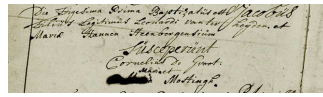 Die Trigesima Prima Baptizatus est Jacobus
Filius Legitimus Leonardi van ter Heyden et
Maria Hannea Steenbergensium
Susceperunt
Cornelius de Groot
Mostingh.